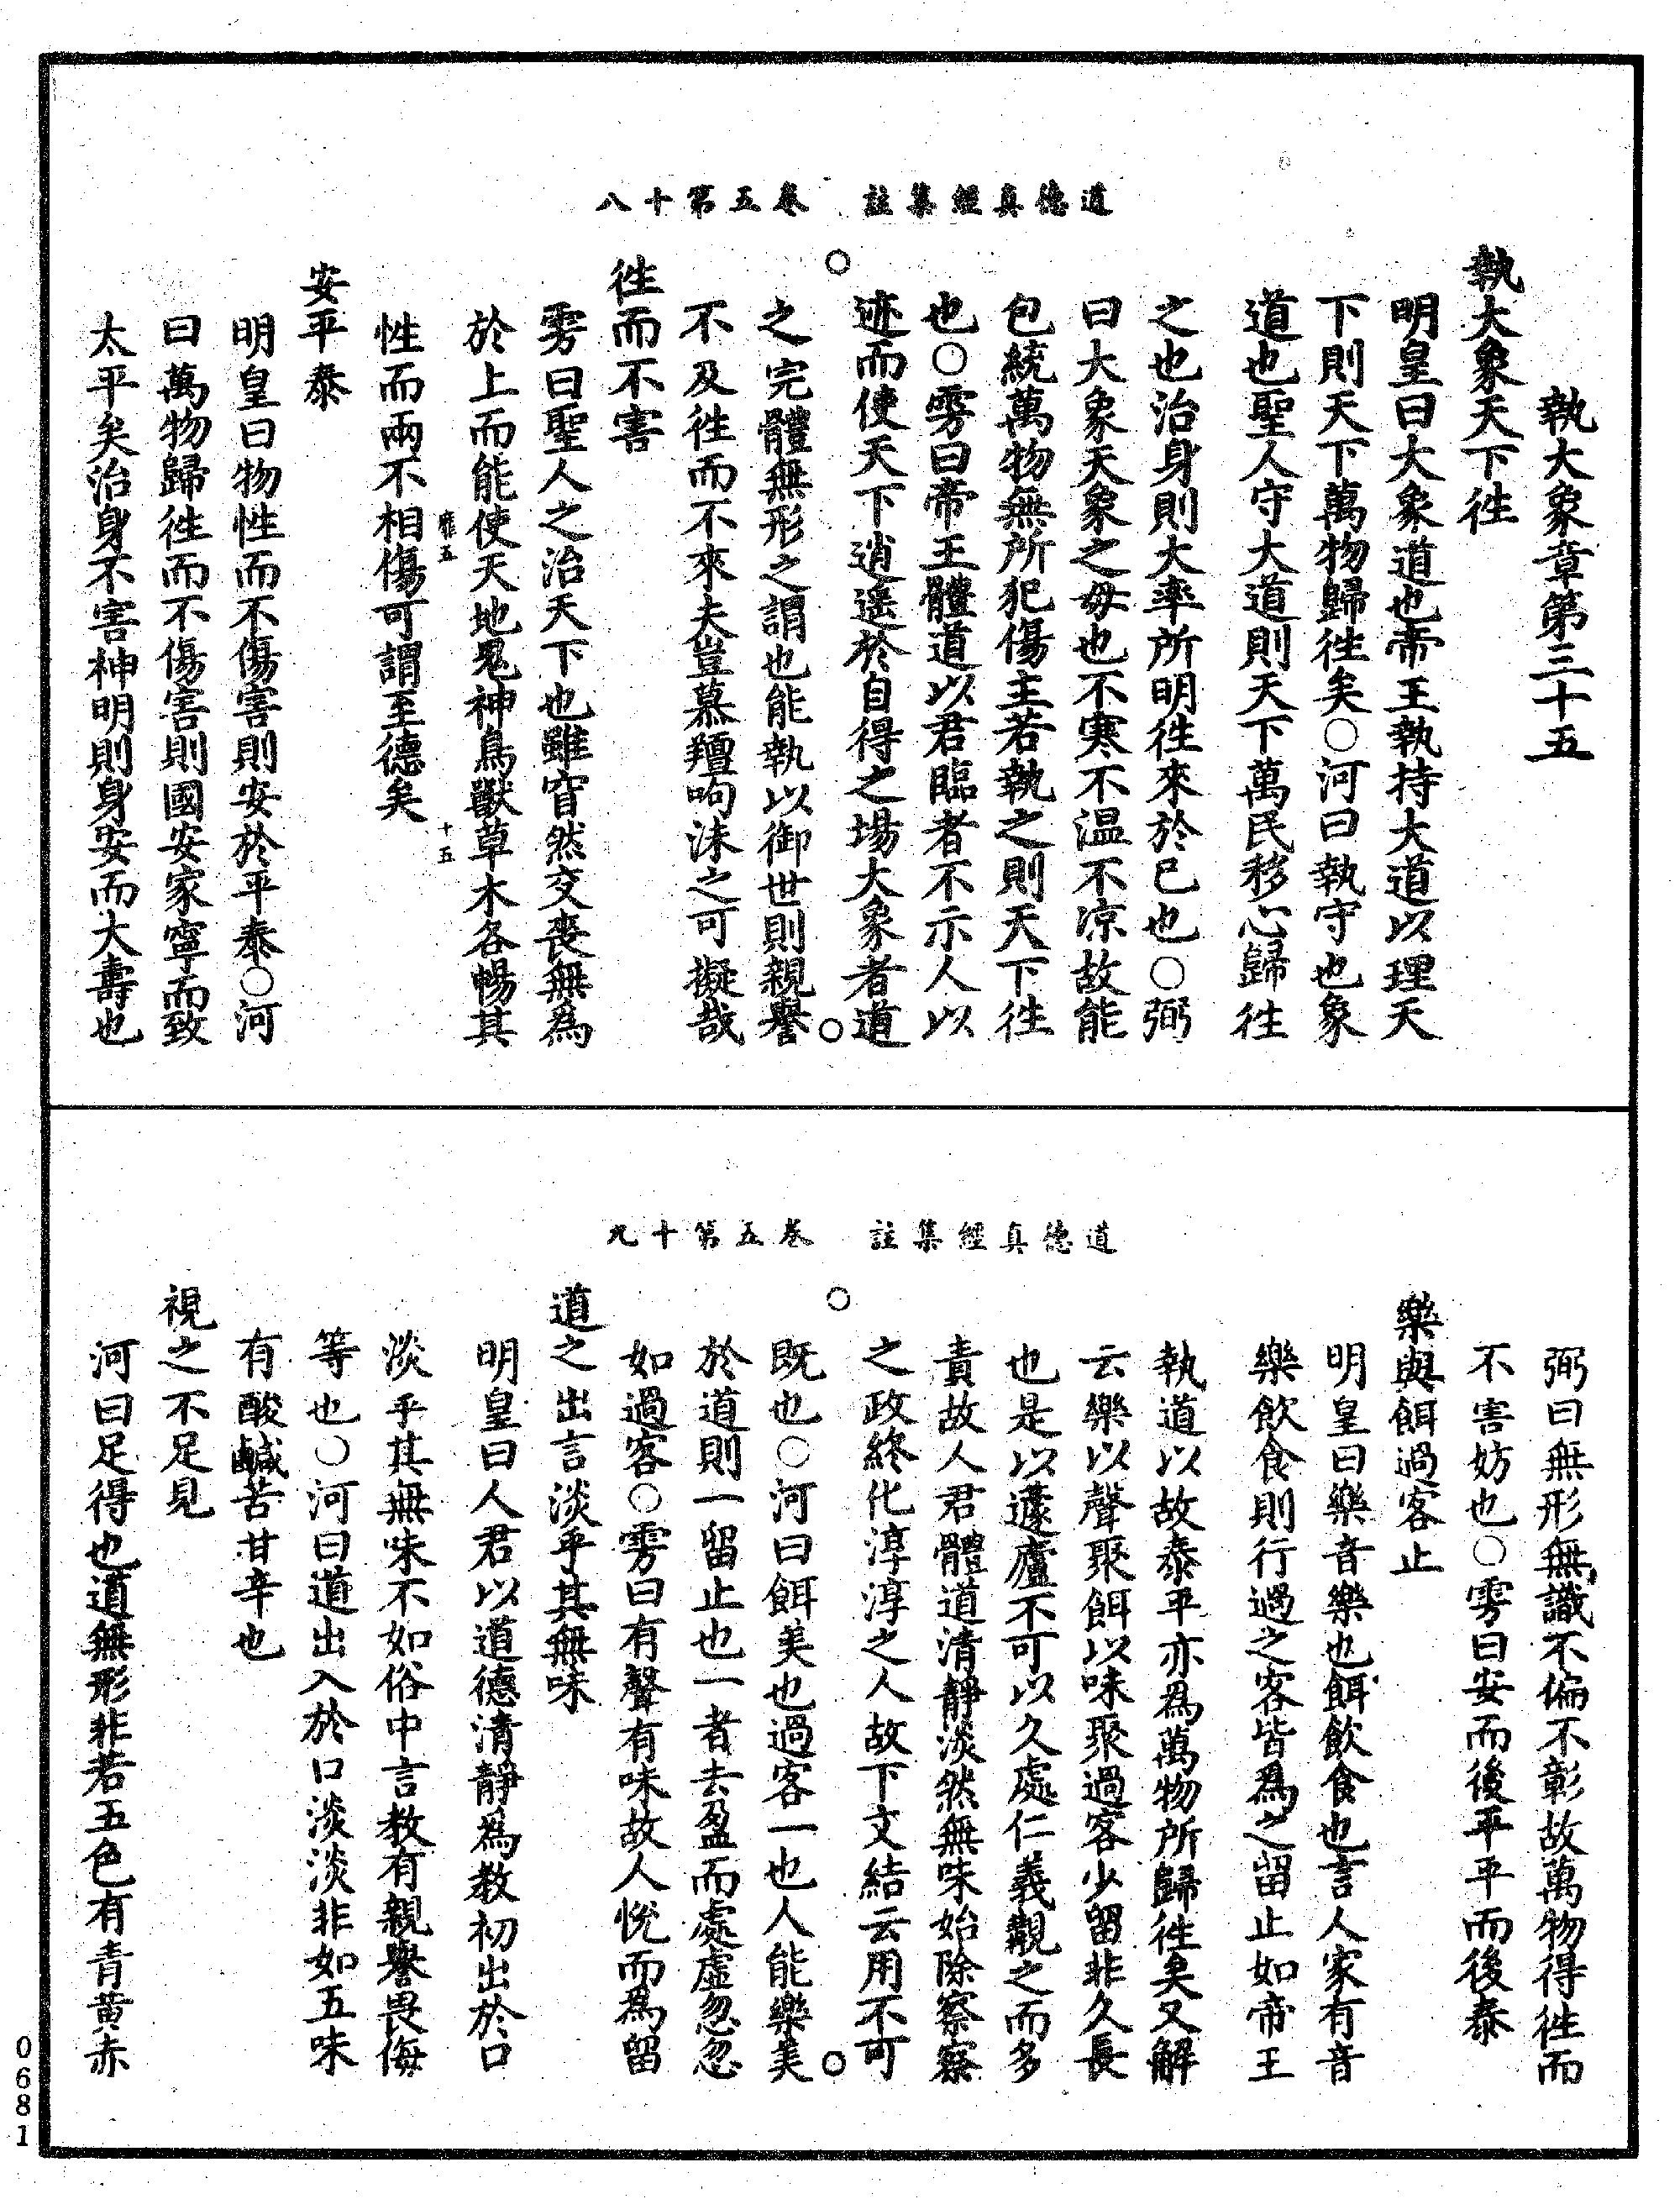 道德真經集註　卷五第十八
執大象章第三十五
執大象天下徃
明皇曰大象道也帝王執持大道以理天
下則天下萬物歸徃矣○河曰執守也象
道也聖人守大道則天下萬民移心歸徃
之也治身則大率所明徃來於己也○弼
曰大象天象之母也不寒不温不凉故能
包統萬物無所犯傷主若執之則天下徃
也○雱曰帝王體道以君臨者不示人以
迹而使天下逍遥於自得之場大象者道
之完體無形之謂也能執以御世則親譽
不及徃而不來夫豈慕羶呴沫之可擬哉
徃而不害
雱曰聖人之治天下也雖窅然交喪無為
於上而能使天地鬼神鳥獸草木各暢其
性而兩不相傷可謂至德矣
十五
安平泰
明皇曰物性而不傷害則安於平泰○河
曰萬物歸徃而不傷害則國安家寧而致
太平矣治身不害神明則身安而大壽也
道德真經集註　卷五第十九
弼曰無形無識不偏不彰故萬物得徃而
不害妨也○雱曰安而後平平而後泰
樂與餌過客止
明皇曰樂音樂也餌飲食也言人家有音
樂飲食則行過之客皆為之留止如帝王
執道以故泰平亦為萬物所歸徃矣又解
云樂以聲聚餌以味聚過客少留非久長
也是以蘧廬不可以久處仁義觀之而多
責故人君體道清靜淡然無味始除察察
之政終化淳淳之人故下文結云用不可
既也○河曰餌美也過客一也人能樂美
於道則一留止也一者去盈而處虛忽忽
如過客○雱曰有聲有味故人悅而為留
道之出言淡乎其無味
明皇曰人君以道德清靜為教初出於口
淡乎其無味不如俗中言教有親譽畏侮
等也○河曰道出入於口淡淡非如五味
有酸鹹苦甘辛也
視之不足見
河曰足得也道無形非若五色有青黃赤
0681